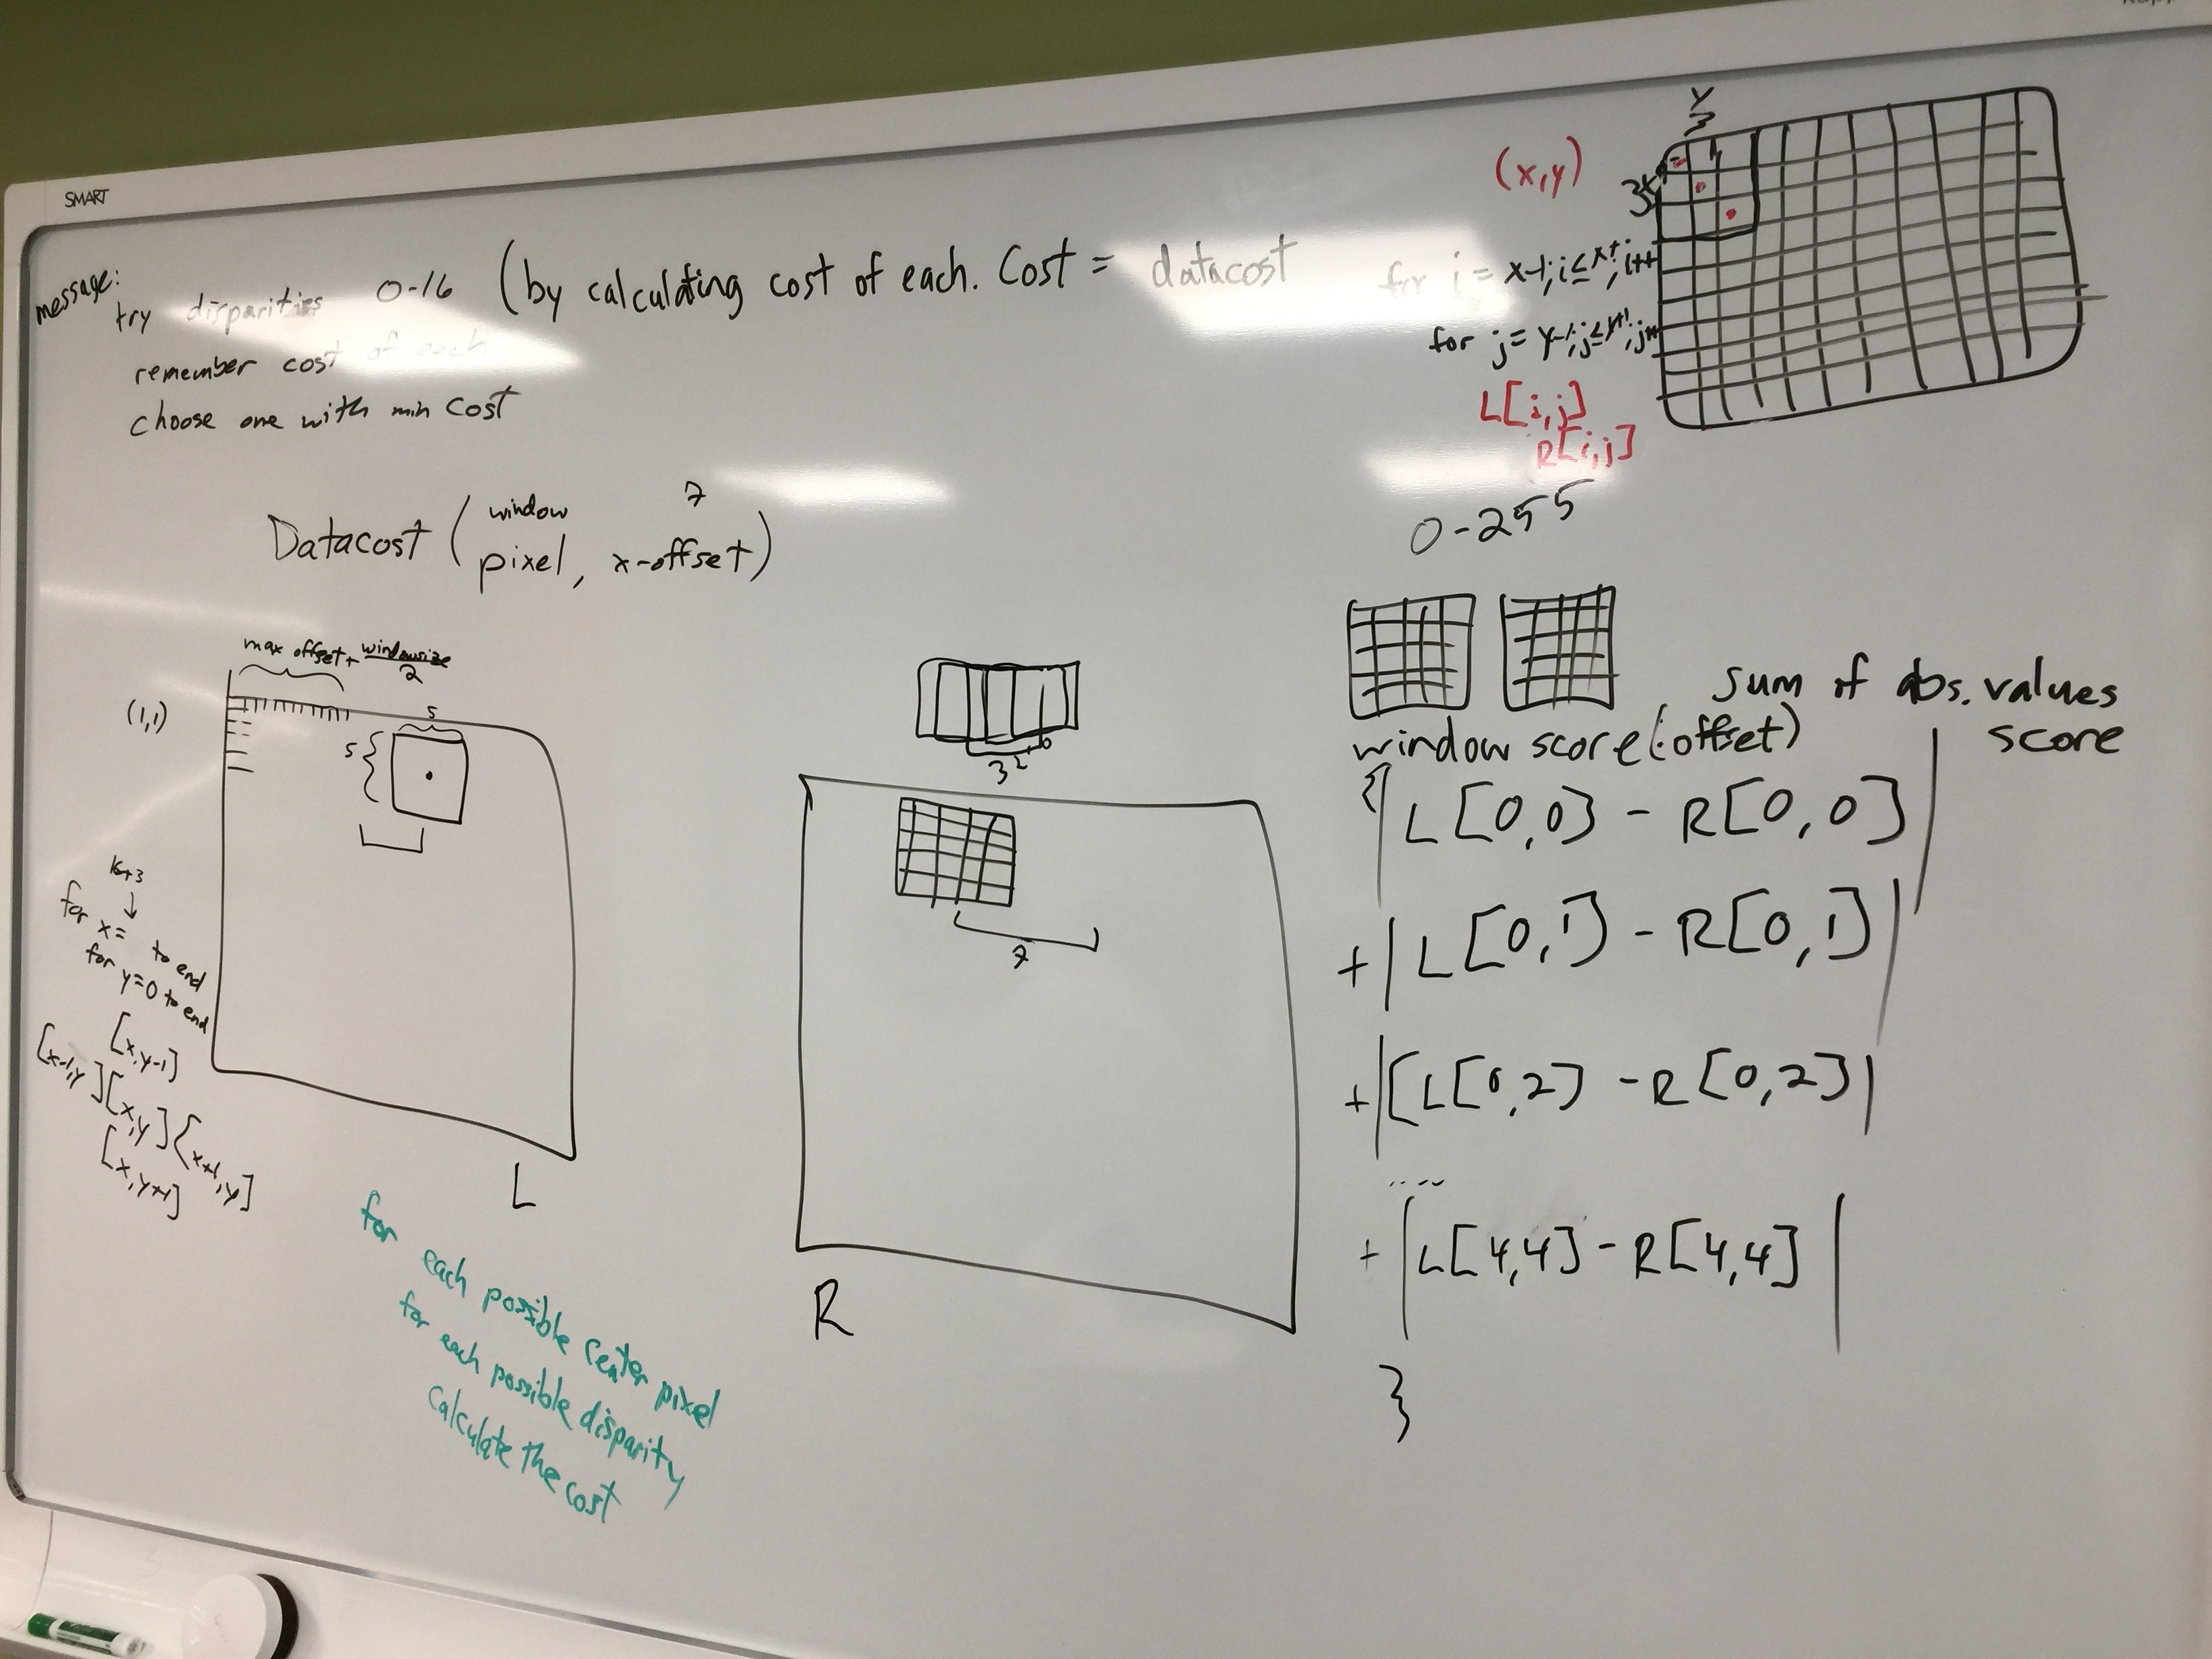 SMART
message:
try disparities 0-16 (by calculating cost of each. Cost = datacost
remember cost of each
choose one with min cost
Datacost (window pixel, x-offset)
7
max offset + windowsize
2
(1,1)
5
5
16+3
↓
for x= to end
for y=0 to end
[x,y-1]
[x-1,y][x,y][x+1,y]
[x,y+1]
L
for each possible center pixel
for each possible disparity
calculate the cost
3
7
R
(x,y)
Y
3
3
for i = x-1; i≤x+1; i++
for j = y-1; j≤y+1; j++
L[i,j]
R[i,j]
0-255
sum of abs. values
score
window score(:offset)
{|L[0,0] - R[0,0]|
+|L[0,1] - R[0,1]|
+|[L[0,2] - R[0,2]|
....
+ |L[4,4] - R[4,4]|
}